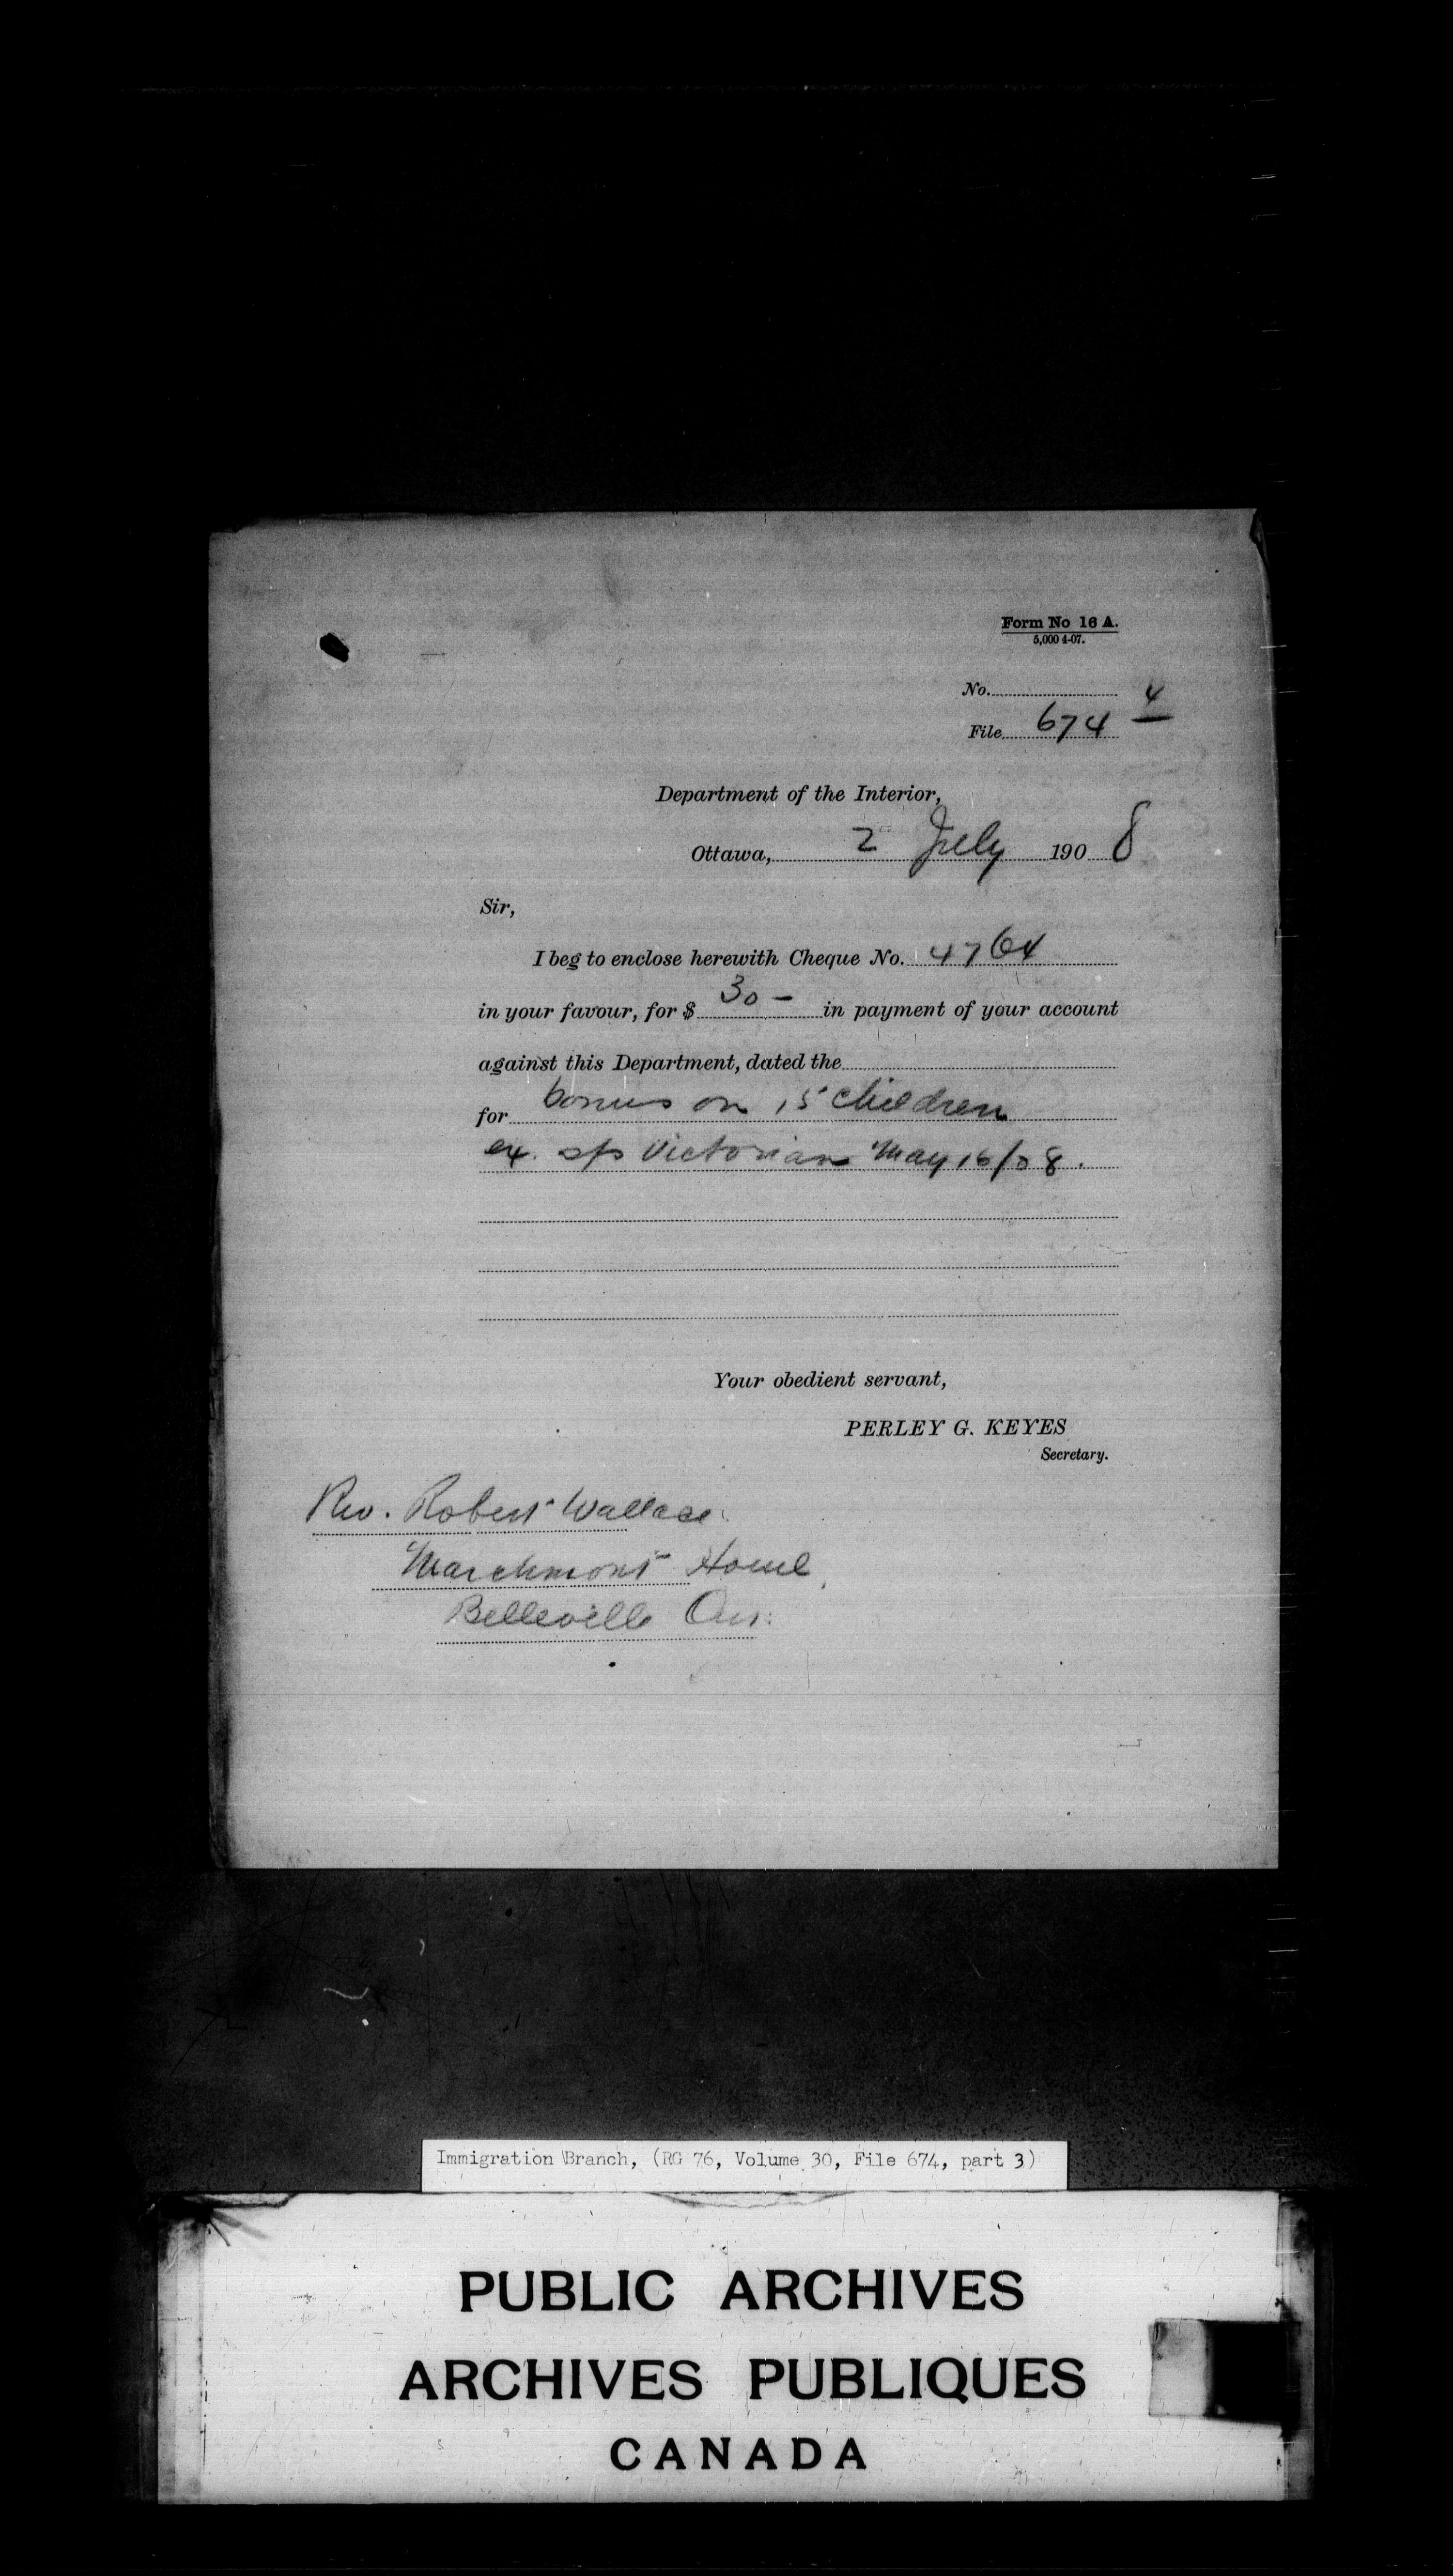 Form No 16 A.
5,000 4-07.
No. 4
File 674
Department of the Interior,
Ottawa, 2 July 1908
Sir,
I beg to enclose herewith Cheque No. 4764
in your favour, for $ 30 – in payment of your account
against this Department, dated the
for bonus on 15 children
ex. s/s Victorian May 16/08.
Your obedient servant,
PERLEY G. KEYES
Secretary.
Rev. Robert Wallace
Marchmont Home,
Belleville Ont.
Immigration Branch, (RG 76, Volume 30, File 674, part 3)
PUBLIC ARCHIVES
ARCHIVES PUBLIQUES
CANADA